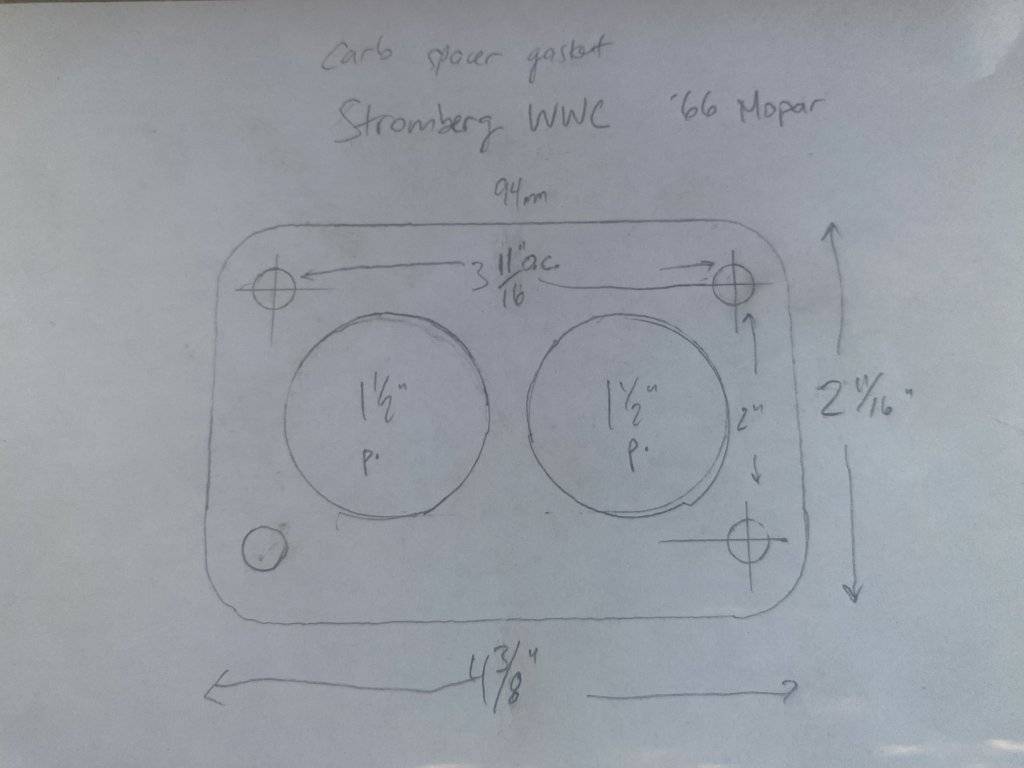 Carb spacer gasket
Stromberg WWC '66 Mopar
94mm
3 11/16" o.c.
1 1/2"
1 1/2"
2"
2 11/16"
4 3/8"